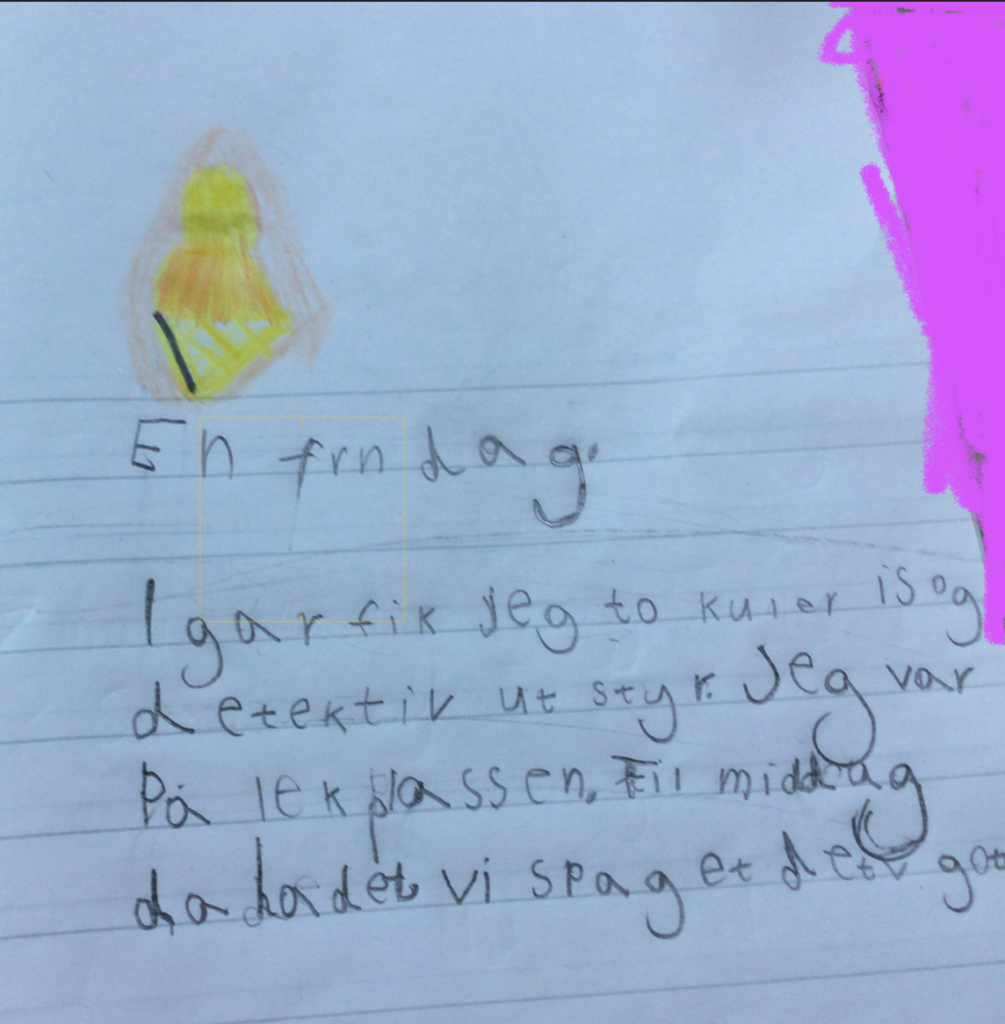 En frn dag.
I gar fik jeg to kuler is og
detektiv ut styr. Jeg var
På lekplassen. Til middag
da hadet vi spaget det v got